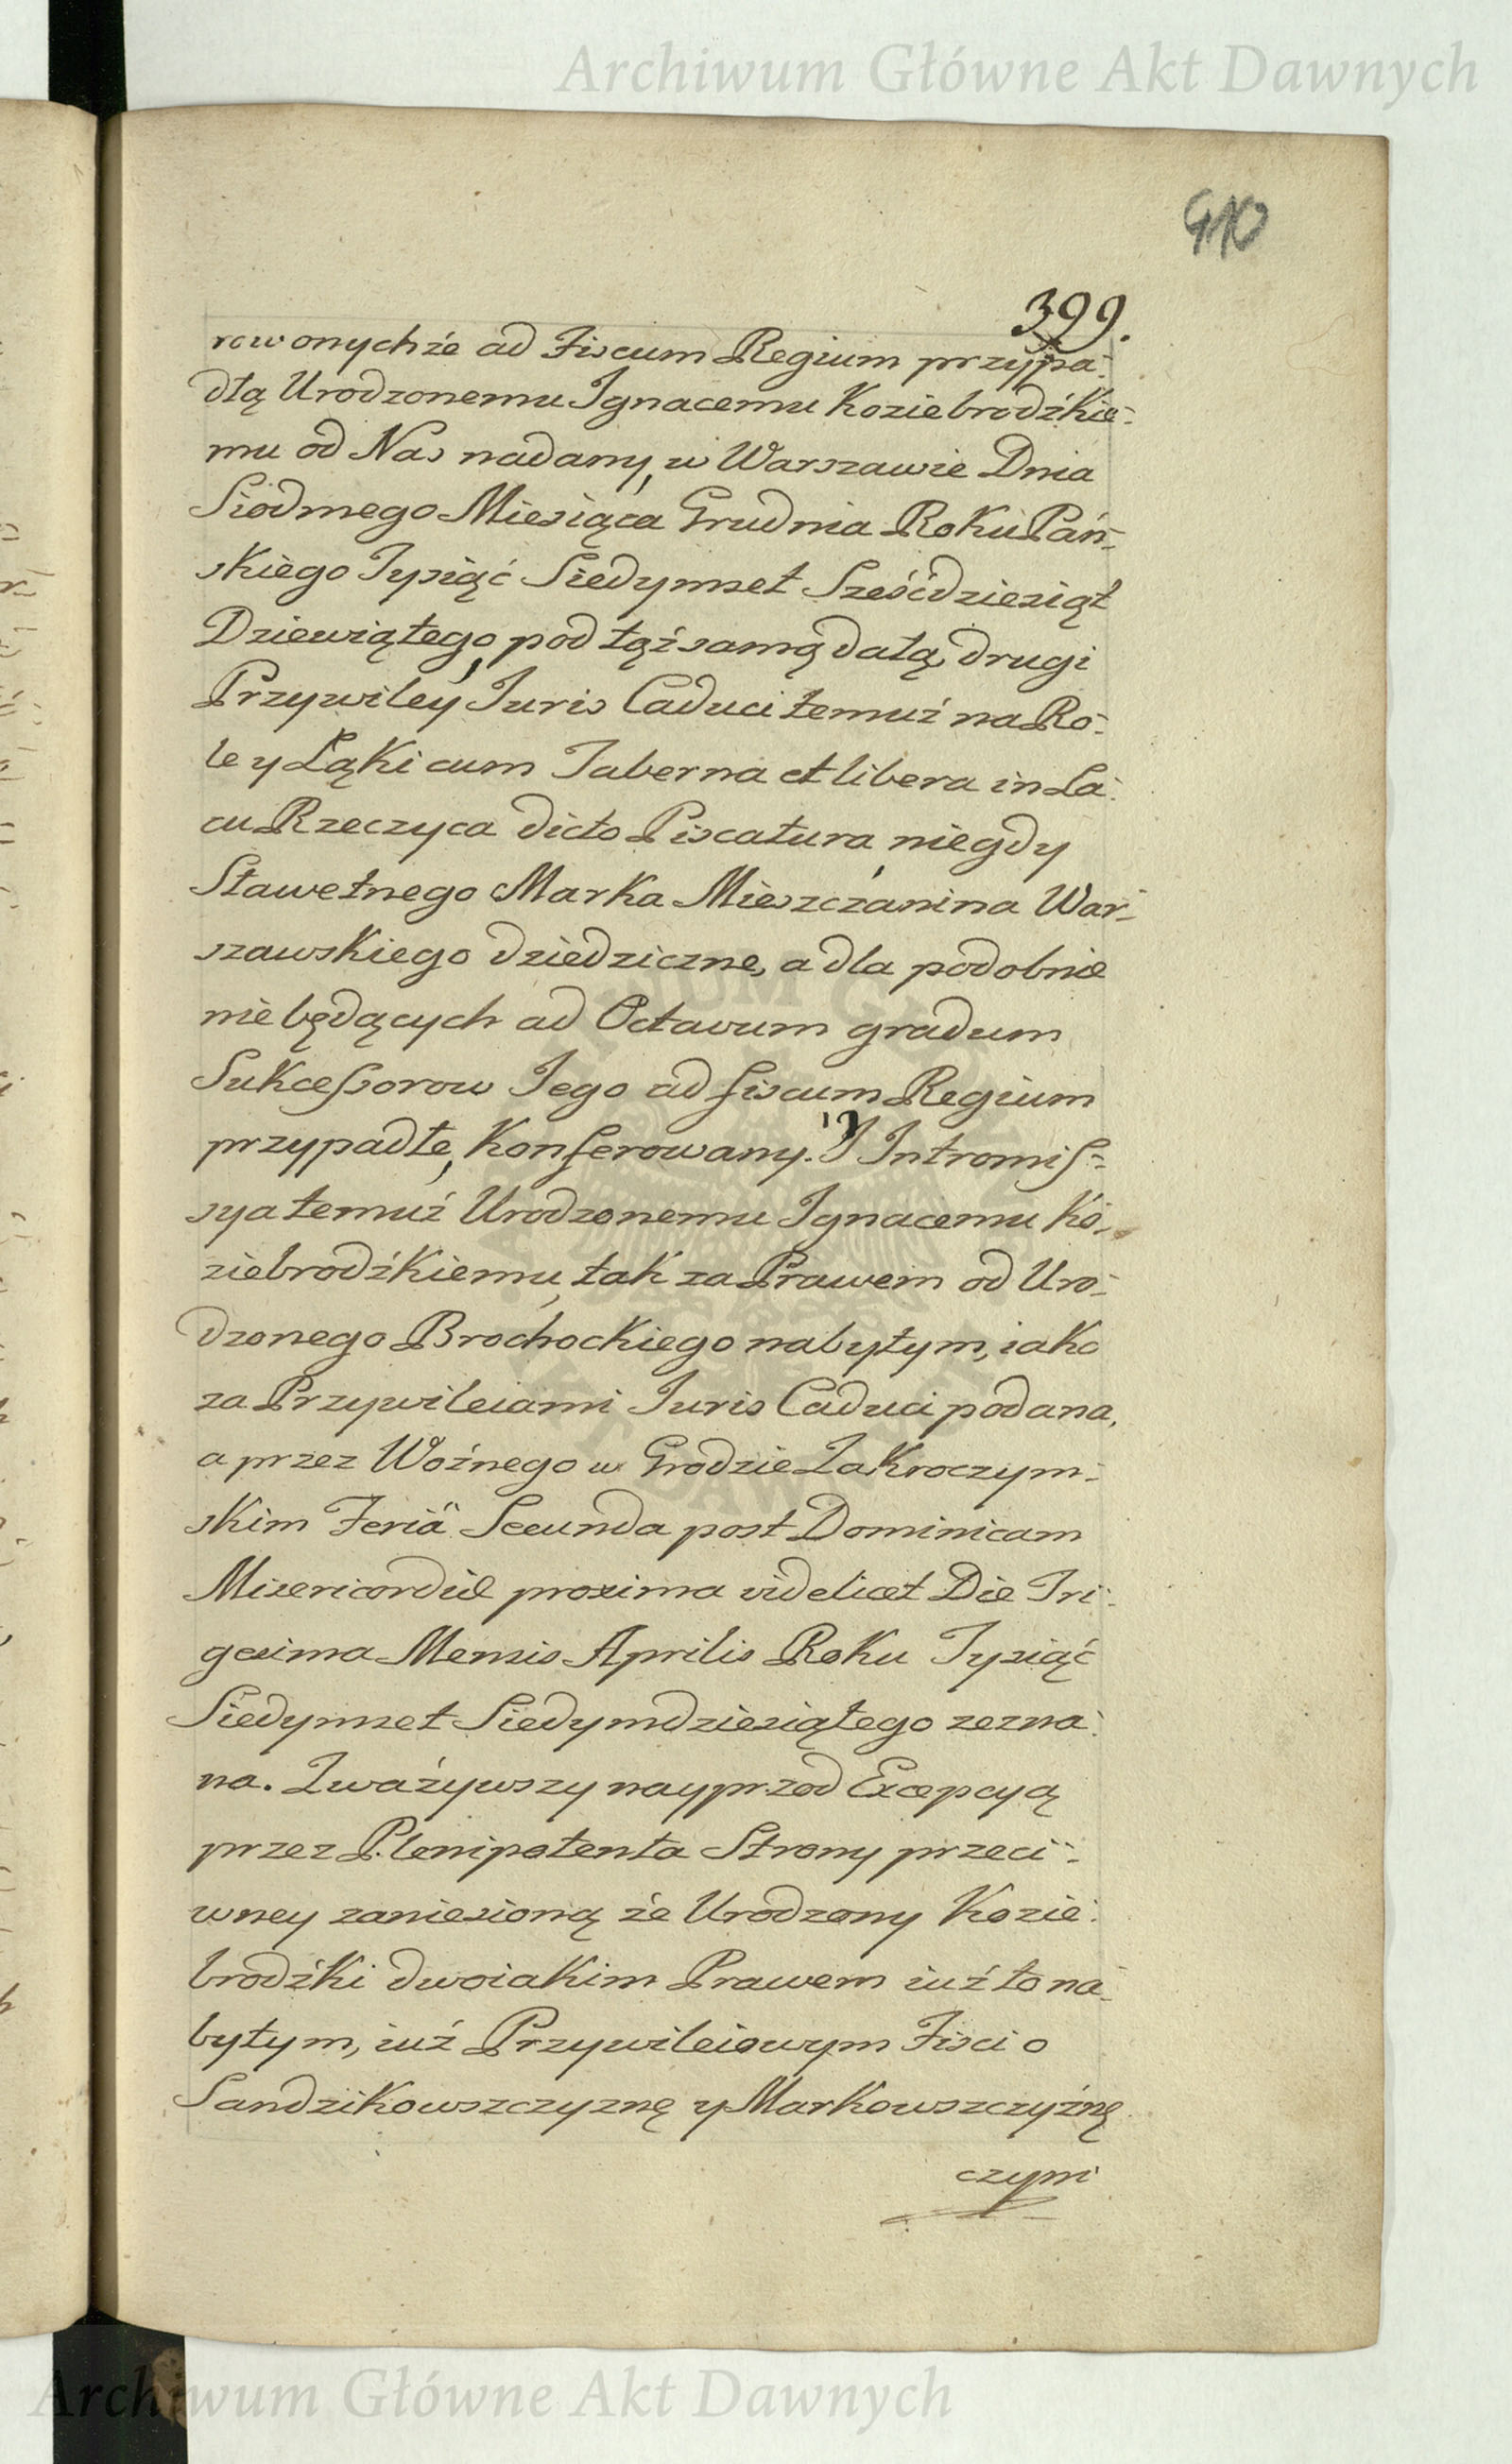 Archiwum Główne Akt Dawnych
410
399.
row onychże ad Fiscum Regium przypa-
dłą Urodzonemu Ignacemu Koziebrodźkie-
mu od Nas nadany, w Warszawie Dnia
Siodmego Miesiąca Grudnia Roku Pań-
skiego Tysiąć Siedymset Sześćdziesiąt
Dziewiątego, pod tąż samą datą, drugi
Przywiley Juris Caduci temuż na Ro-
le y Łąki cum Taberna et libera in La-
cu Rzeczyca dicto Piscatura, niegdy
Sławetnego Marka Mieszczanina War-
szawskiego dziedziczne, a dla podobnie
nie będących ad Octavum gradum
Sukcessorow Jego ad fiscum Regium
przypadłe, konferowany. I Intromis-
sya temuż Urodzonemu Ignacemu Ko-
ziebrodźkiemu, tak za Prawem od Uro-
dzonego Brochockiego nabytym, iako
za Przywileiami Juris Caduci podana,
a przez Woźnego w Grodzie Zakroczym-
skim Feriâ Secunda post Dominicam
Misericordie proxima videlicet Die Tri-
gesima Mensis Aprilis Roku Tysiąć
Siedymset Siedymdziesiątego zezna-
na. Zważywszy nayprzod Excepcyą
przez Plenipotenta Strony przeci-
wney zaniesioną że Urodzony Kozie-
brodźki dwoiakim Prawem iuż to na-
bytym, iuż Przywileiowym Fisci o
Sandzikowszczyznę y Markowszczyźnę
czyni
Archiwum Główne Akt Dawnych